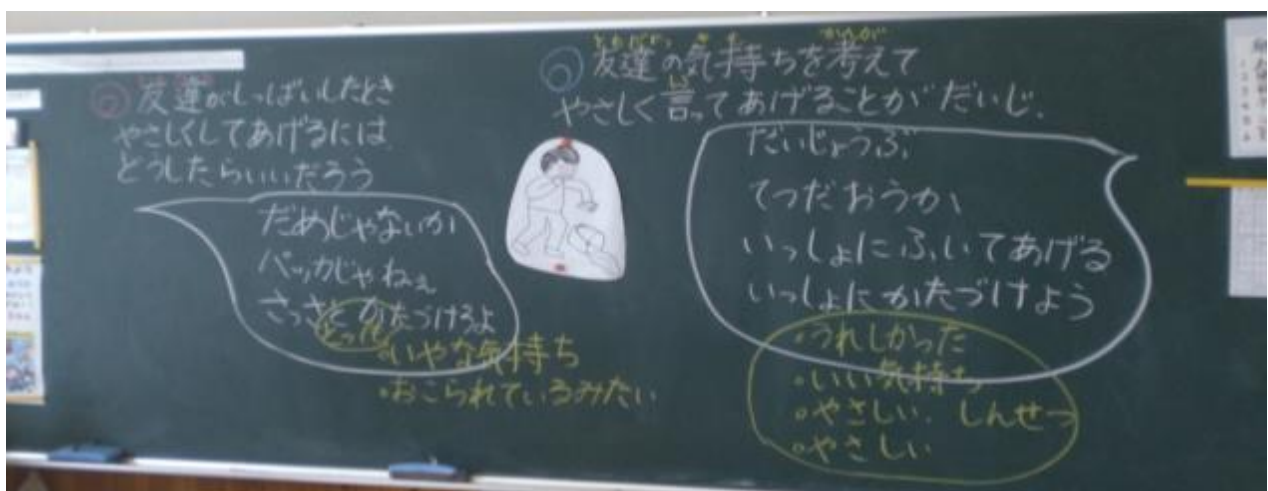 友達がしっぱいしたとき
やさしくしてあげるには
どうしたらいいだろう
だめじゃないか
バッカじゃねぇ
さっさとかたづけろよ
・いやな気持ち
・おこられているみたい
友達の気持ちを考えて
やさしく言ってあげることがだいじ.
だいじょうぶ
てつだおうか
いっしょにふいてあげる
いっしょにかたづけよう
・うれしかった
・いい気持ち
・やさしい. しんせつ
・やさしい